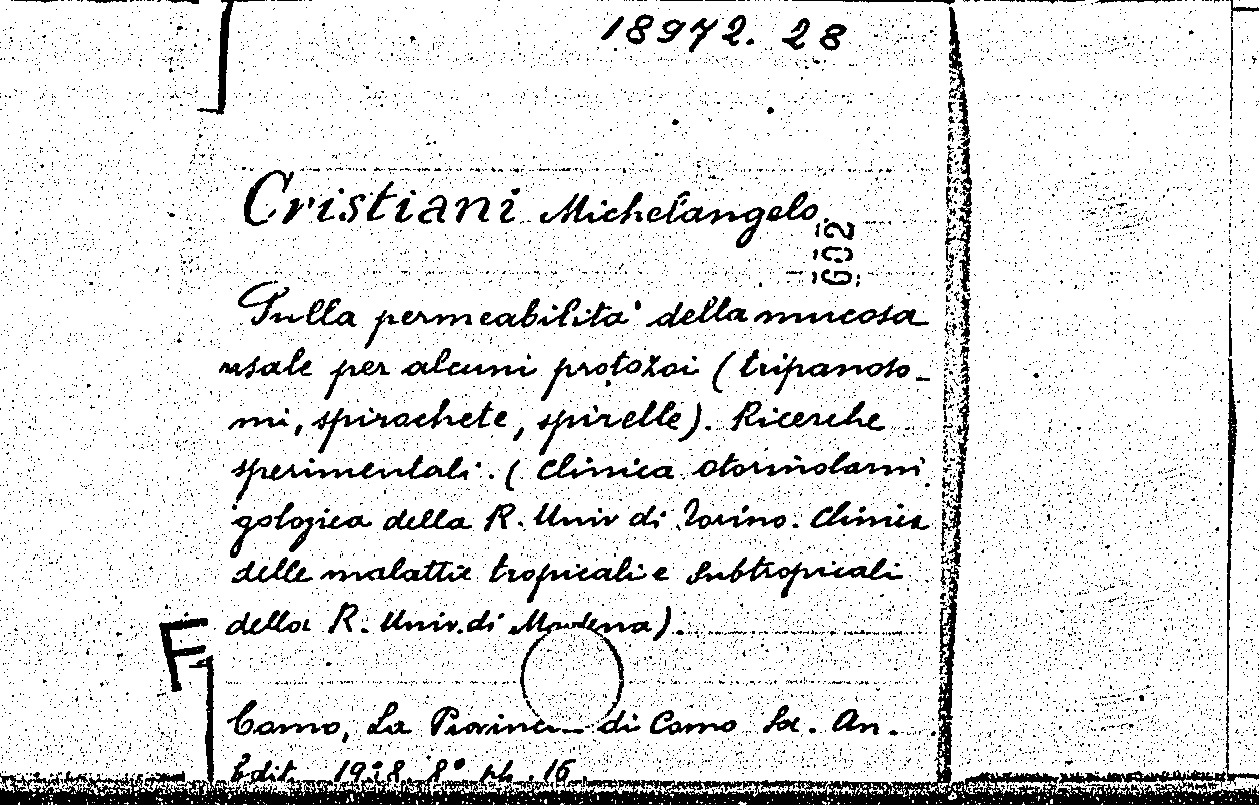 18972. 28
Cristiani Michelangelo.
602
Sulla permeabilità della mucosa
nasale per alcuni protozoi (tripanoso-
mi, spirochete, spirelle). Ricerche
sperimentali. (Clinica otorinolarin
gologica della R. Univ di Torino. Clinica
delle malattie tropicali e subtropicali
della R. Univ. di Modena).
F
Como, La Provincia di Como Soc. An.
Edit. 1928. 8° pp. 16